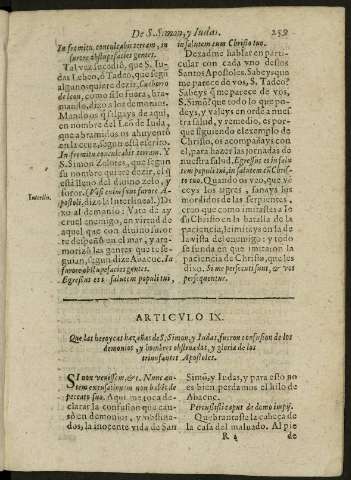 De S. Simon, y Iudas. 259
In fremitu conculcabis terram, in
furore obstupefacies gentes.
Tal vez sucediò, que S. Iu-
das Lebeo, ò Tadeo, que segũ
algunos quiere dezir, Cachorro
de leon, como assi fuera, bra-
mando, dixo a los demonios.
Mandoos q̃ salgays de aqui,
en nombre del Leõ de Iuda,
que a bramidos os ahuyentò
en la cruz, segun esse escrito.
In fremitu conculcabis terram. Y
S. Simon Zelotes, que segun
su nombre quiere dezir, el q̃
està lleno del divino zelo, y
furor.
Interlin.
apostoli, dixo la Interlineal.) Di-
xo al demonio: Vate de ay
cruel enemigo, en virtud de
aquel que con divino furor
te despeñò en el mar, y ate-
morizò las gentes que te se-
guian, segun dize Abacuc. In
furore obstupefacies gentes.
Egressus est in salutem populi tui,
in salutem cum Christo tuo.
Dexadme hablar en parti-
cular con cada vno destos
Santos Apostoles. Sabeys que
me parece de vos, S. Tadeo?
Sabeys q̃ me parece de vos,
S. Simõ? que todo lo que po-
deys, y valeys en orden a nues-
tra salud, y remedio, es por-
que siguiendo el exemplo de
Christo, os acompañays con
el, para hazer las jornadas de
nuestra salud. Egressus est in salu
tem populi tui, in salutem cũ Chris-
to tuo. Quando os veo, que vẽ
ceys los tigres, sanays los
mordidos de las serpientes,
creo que como imitastes a
Christo en la batalla de la
paciencia, le imitays en la de
la villa del enemigo: y todo
se funda en que imitaron la
paciencia de Christo, que les
dixo. Si me persecuti sunt, & vos
persequentur.
ARTICVLO IX.
Que las heroycas hazañas de S. Simon, y Iudas, fueron confusion de los
demonios, y hombres obstinados, y gloria de los
triunfantes Apostoles.
SI non venissem, &c. Nunc au-
tem excusationem non habẽt de
peccato suo. Aqui me toca de-
clarar la confusion que cau-
sò en demonios, y obstina-
dos, la inocente vida de San
Simõ, y Iudas, y para esto no
es bien perdamos el hilo de
Abacuc.
Percussisti caput de domo impij.
Quebrantaste la cabeça de
la casa del malvado. Al pie
de